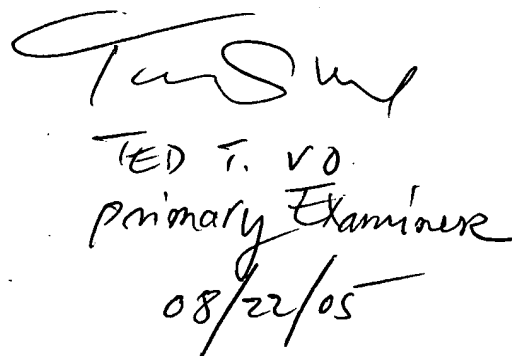 TED T. VO
primary Examiner
08/22/05